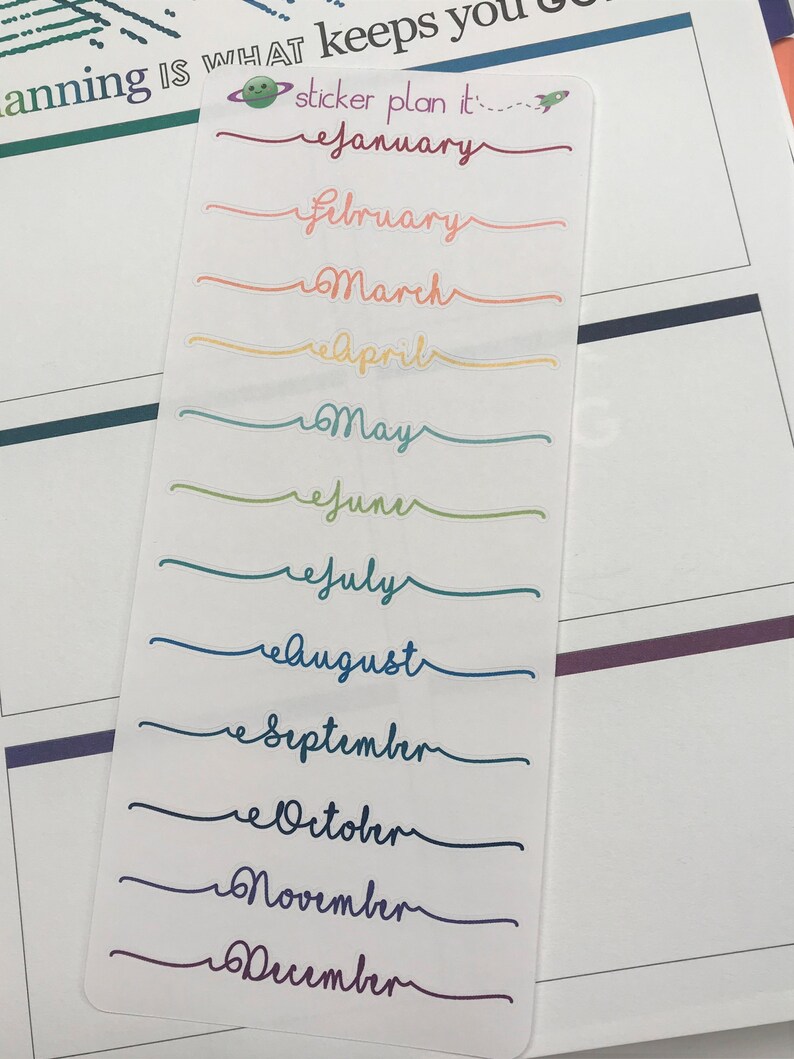 keeps you
IS WHAT
sticker plan it
January
February
March
April
May
June
July
August
September
October
November
December
G